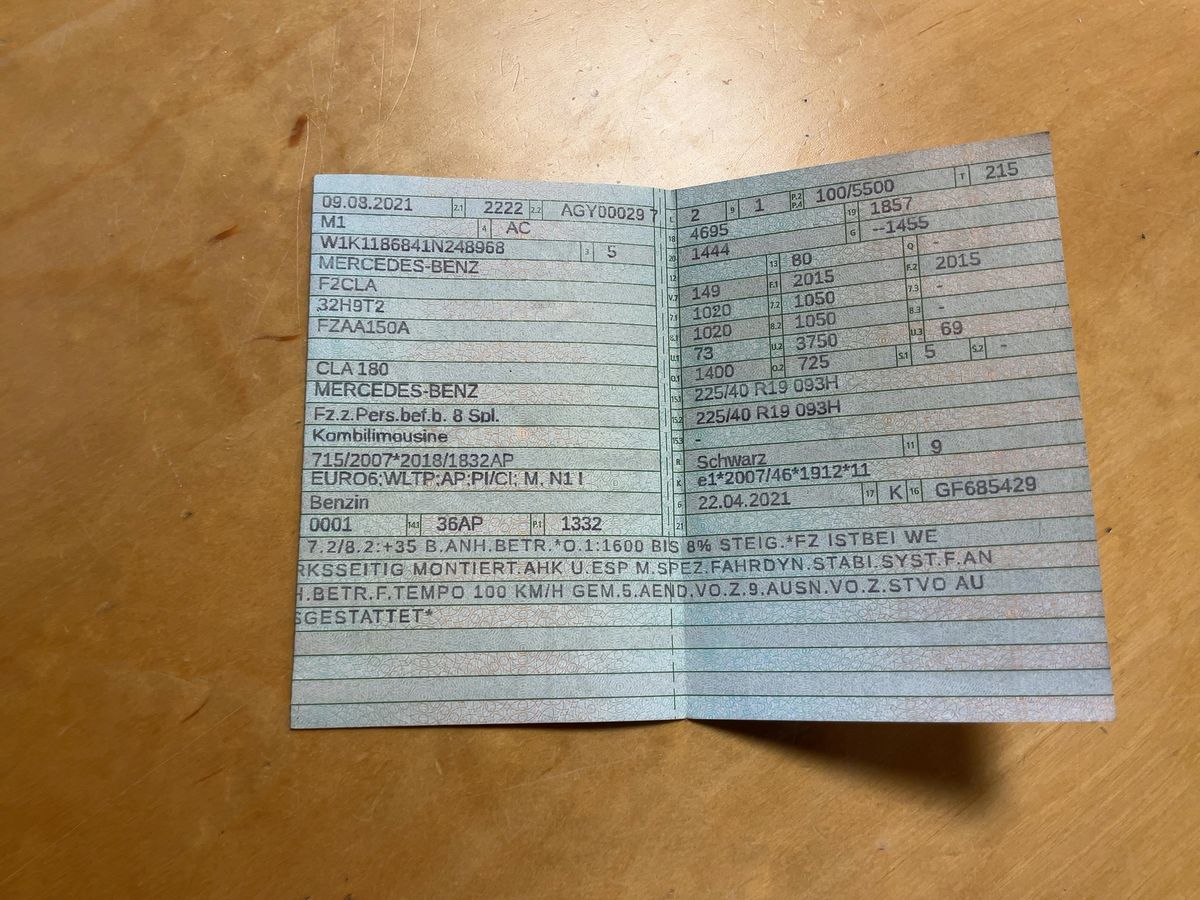 09.08.2021 2.1 2222 2.2 AGY00029 7
M1 4 AC
W1K1186841N248968 3 5
MERCEDES-BENZ
F2CLA
32H9T2
FZAA150A
CLA 180
MERCEDES-BENZ
Fz.z.Pers.bef.b. 8 Spl.
Kombilimousine
715/2007*2018/1832AP
EURO6;WLTP;AP;PI/CI; M, N1 I
Benzin
0001 14.1 36AP P.1 1332
L 2 9 1 P.2 P.4 100/5500 T 215
18 4695 19 1857
20 1444 G --1455
12 13 80 Q -
V.7 149 F.1 2015 F.2 2015
7.1 1020 7.2 1050 7.3 -
8.1 1020 8.2 1050 8.3 -
U.1 73 U.2 3750 U.3 69
O.1 1400 O.2 725 S.1 5 S.2 -
15.1 225/40 R19 093H
15.2 225/40 R19 093H
15.3 -
R Schwarz 11 9
K e1*2007/46*1912*11
6 22.04.2021 17 K 16 GF685429
21
7.2/8.2:+35 B.ANH.BETR.*O.1:1600 BIS 8% STEIG.*FZ ISTBEI WE
RKSSEITIG MONTIERT.AHK U.ESP M.SPEZ.FAHRDYN.STABI.SYST.F.AN
H.BETR.F.TEMPO 100 KM/H GEM.5.AEND.VO.Z.9.AUSN.VO.Z.STVO AU
SGESTATTET*